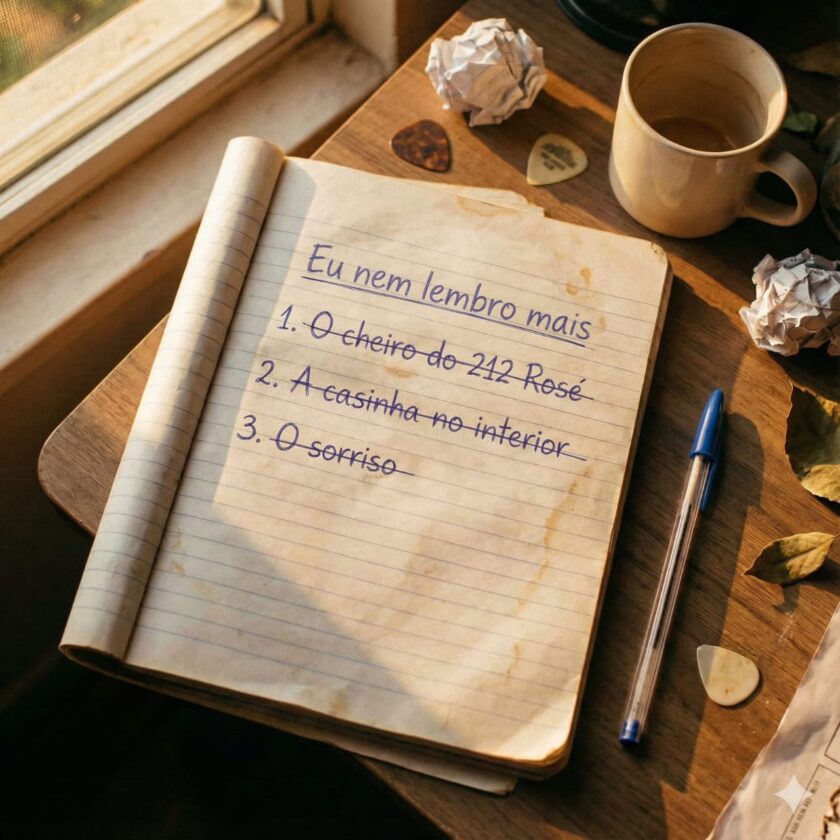 Eu nem lembro mais
1. O cheiro do 212 Rosé
2. A casinha no interior
3. O sorriso